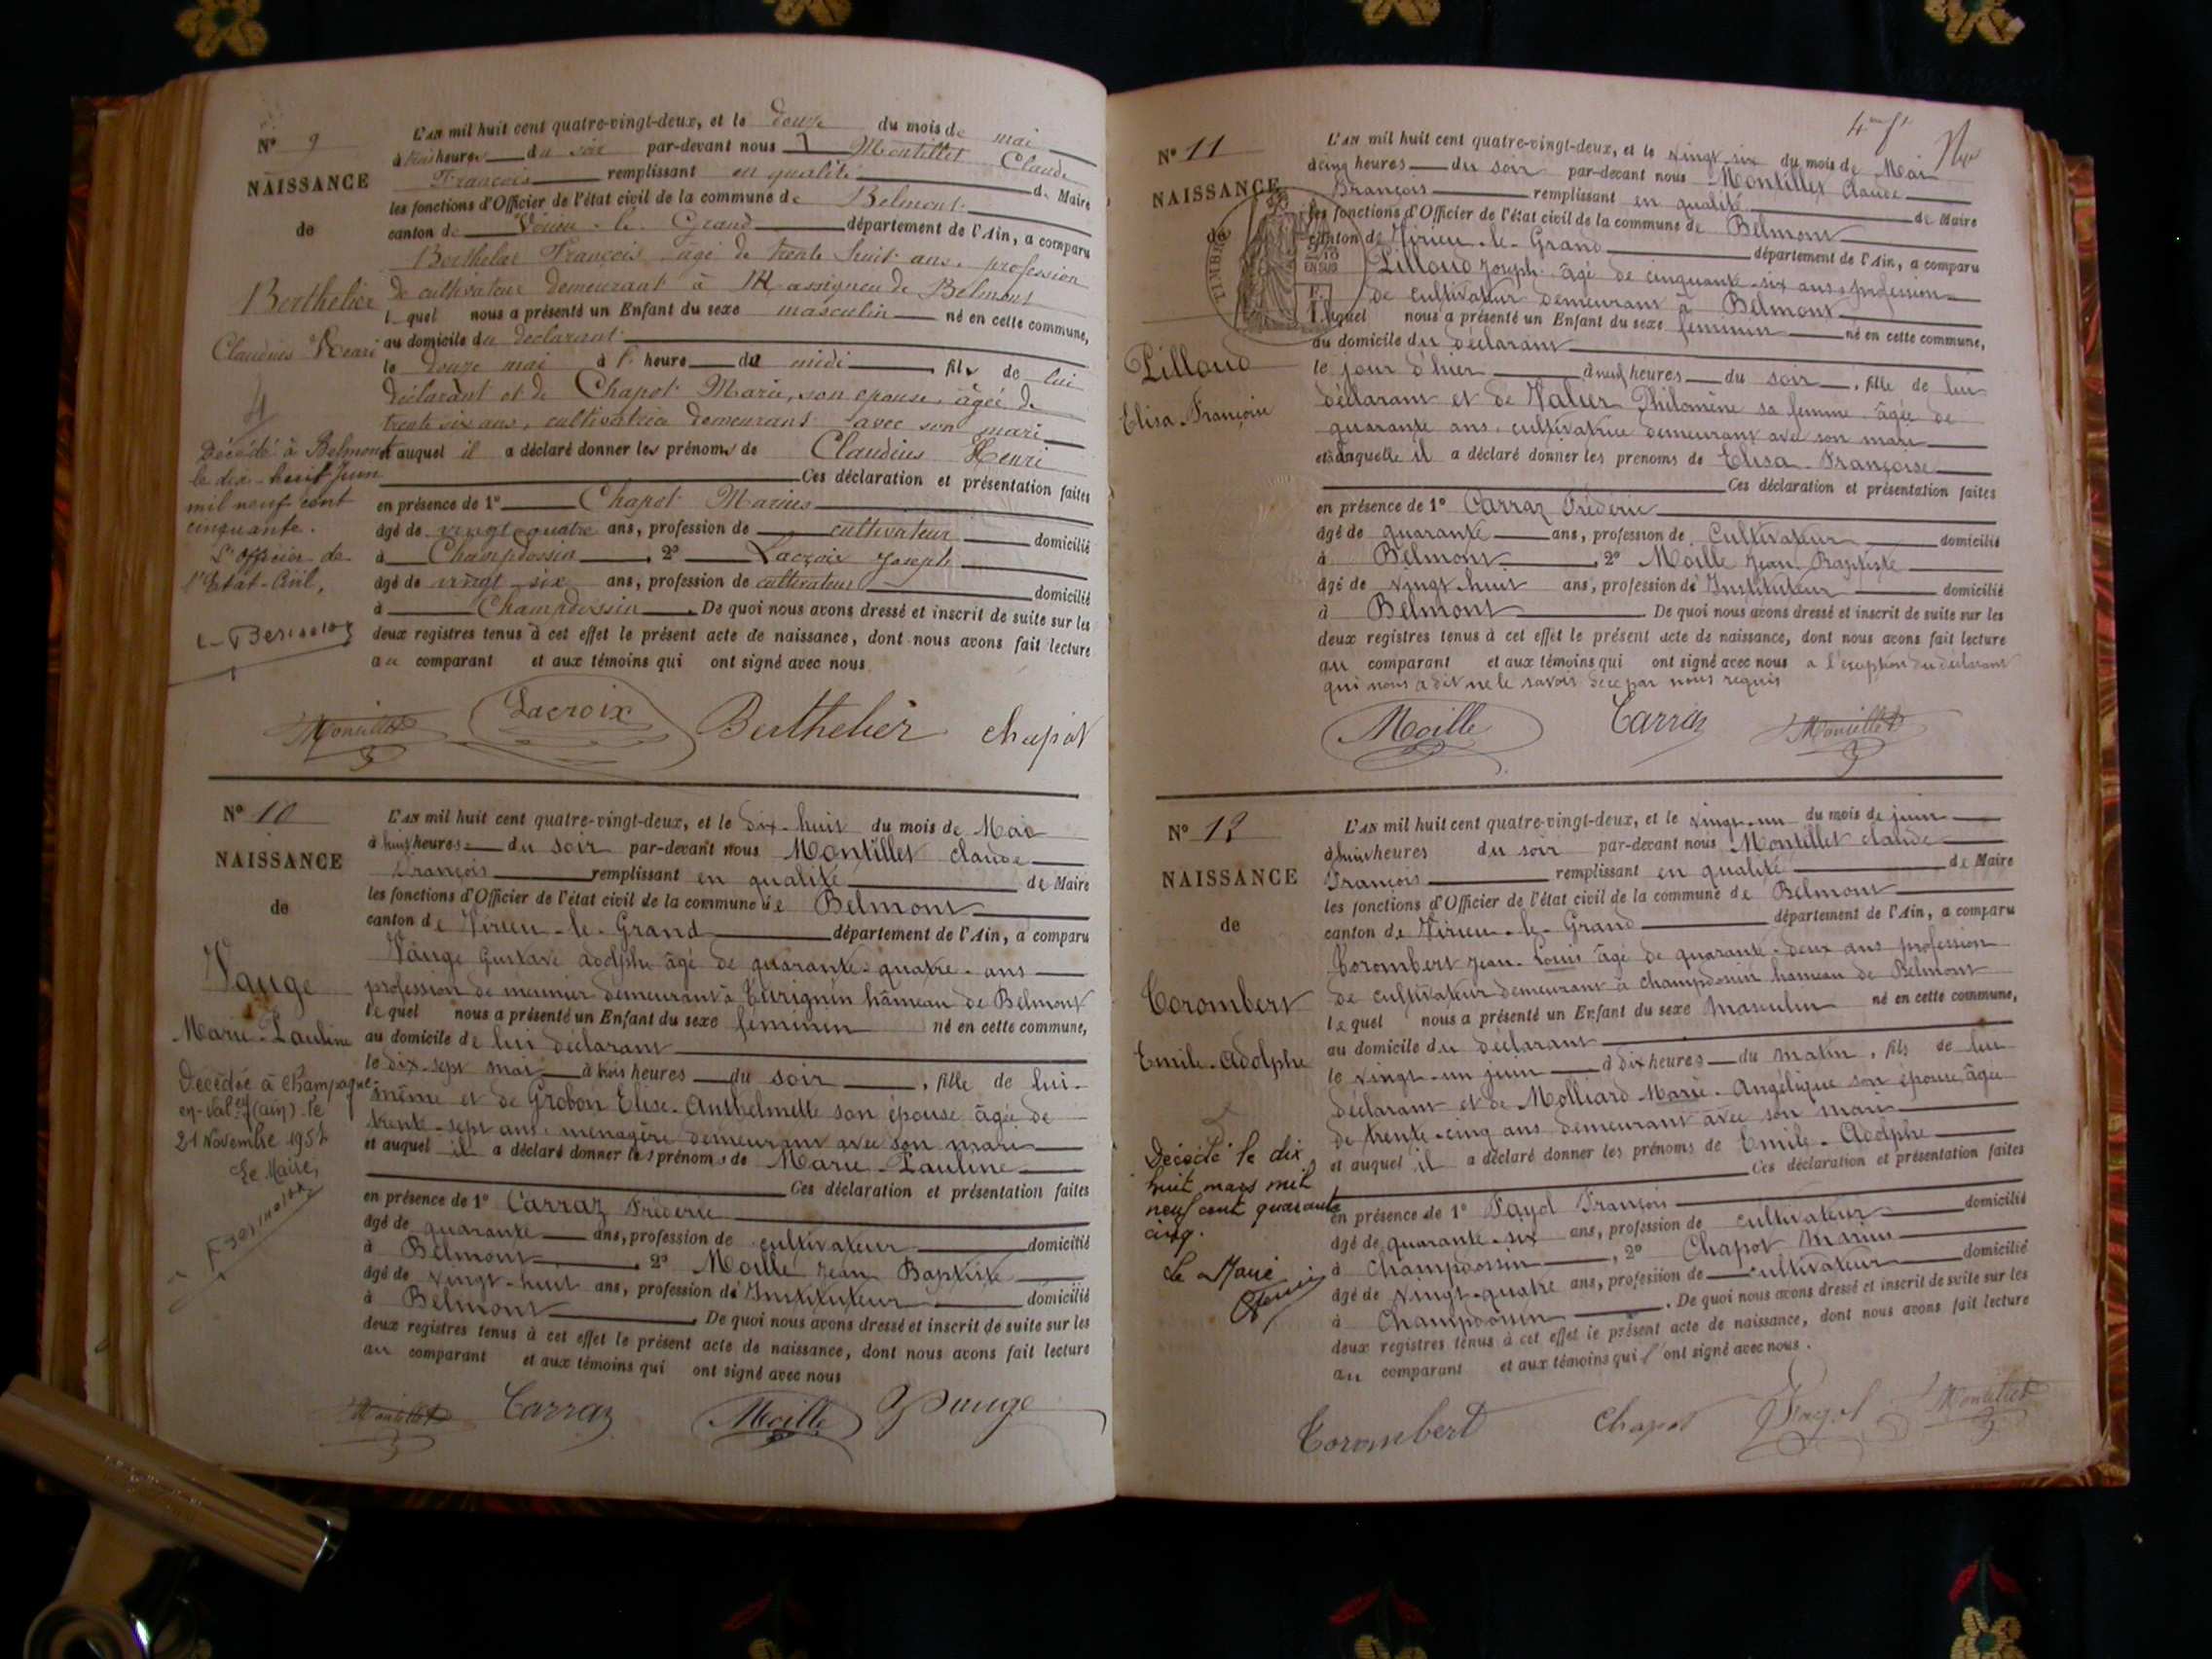 N° 9
NAISSANCE
de
Berthelier
Claudius Henri
Décédé à Belmont
le dix-huit Juin
mil neuf cent
cinquante.
L'Officier de
l'Etat-Civil,
L'AN mil huit cent quatre-vingt-deux, et le douze du mois de mai
à heures du soir par-devant nous Montillet Claude
François remplissant en qualité de Maire
les fonctions d'Officier de l'état civil de la commune de Belmont
canton de Virieu-le-Grand département de l'Ain, a comparu
Berthelier François, âgé de trente huit ans, profession
de cultivateur demeurant à Massigneu de Belmont
lequel nous a présenté un Enfant du sexe masculin né en cette commune,
au domicile du déclarant
le douze mai à heure du midi, fils de lui
déclarant et de Chapot Marie, son épouse, âgée de
trente six ans, cultivatrice demeurant avec son mari
et auquel il a déclaré donner les prénoms de Claudius Henri
Ces déclaration et présentation faites
en présence de 1° Chapot Marius
âgé de vingt quatre ans, profession de cultivateur domicilié
à Champdossin, 2° Lacroix Joseph
âgé de vingt six ans, profession de cultivateur domicilié
à Champdossin. De quoi nous avons dressé et inscrit de suite sur les
deux registres tenus à cet effet le présent acte de naissance, dont nous avons fait lecture
au comparant et aux témoins qui ont signé avec nous
Montillet Lacroix Berthelier Chapot
N° 10
NAISSANCE
de
Vauge
Marie-Pauline
Décédée à Champagne-
en-Valey (Ain) le
21 Novembre 195
Le Maire,
L'AN mil huit cent quatre-vingt-deux, et le dix-huit du mois de Mai
à huit heures du soir par-devant nous Montillet Claude
François remplissant en qualité de Maire
les fonctions d'Officier de l'état civil de la commune de Belmont
canton de Virieu-le-Grand département de l'Ain, a comparu
Vauge Gustave Adolphe âgé de quarante-quatre ans
profession de meunier demeurant à Thurignin hameau de Belmont
lequel nous a présenté un Enfant du sexe féminin né en cette commune,
au domicile de lui déclarant
le dix-sept mai à trois heures du soir, fille de lui-
même et de Grobon Elise-Anthelmette son épouse âgée de
trente-sept ans, ménagère demeurant avec son mari
et auquel il a déclaré donner les prénoms de Marie-Pauline
Ces déclaration et présentation faites
en présence de 1° Carraz Fréderic
âgé de quarante ans, profession de cultivateur domicilié
à Belmont, 2° Moille Jean Baptiste
âgé de vingt-huit ans, profession de Instituteur domicilié
à Belmont. De quoi nous avons dressé et inscrit de suite sur les
deux registres tenus à cet effet le présent acte de naissance, dont nous avons fait lecture
au comparant et aux témoins qui ont signé avec nous
Montillet Carraz Moille Vauge
N° 11
NAISSANCE
de
TIMBRE
2/10
EN SUS
Pilloud
Elisa-Françoise
L'AN mil huit cent quatre-vingt-deux, et le vingt-six du mois de Mai
à cinq heures du soir par-devant nous Montillet Claude
François remplissant en qualité de Maire
les fonctions d'Officier de l'état civil de la commune de Belmont
canton de Virieu-le-Grand département de l'Ain, a comparu
Pilloud Joseph âgé de cinquante-six ans, profession
de cultivateur demeurant à Belmont
lequel nous a présenté un Enfant du sexe féminin né en cette commune,
au domicile du déclarant
le jour d'hier à neuf heures du soir, fille de lui
déclarant et de Valier Philomène sa femme âgée de
quarante ans, cultivatrice demeurant avec son mari
et à laquelle il a déclaré donner les prénoms de Elisa-Françoise
Ces déclaration et présentation faites
en présence de 1° Carraz Fréderic
âgé de quarante ans, profession de Cultivateur domicilié
à Belmont, 2° Moille Jean-Baptiste
âgé de vingt-huit ans, profession de Instituteur domicilié
à Belmont De quoi nous avons dressé et inscrit de suite sur les
deux registres tenus à cet effet le présent acte de naissance, dont nous avons fait lecture
au comparant et aux témoins qui ont signé avec nous a l'exception du déclarant
qui nous a dit ne le savoir de ce par nous requis
Moille Carraz Montillet
N° 12
NAISSANCE
de
Corombert
Emile-Adolphe
Décédé le dix
huit mars mil
neuf cent quarante
cinq.
Le Maire
L'AN mil huit cent quatre-vingt-deux, et le vingt-un du mois de juin
à huit heures du soir par-devant nous Montillet Claude
François remplissant en qualité de Maire
les fonctions d'Officier de l'état civil de la commune de Belmont
canton de Virieu-le-Grand département de l'Ain, a comparu
Corombert Jean-Louis âgé de quarante-deux ans profession
de cultivateur demeurant à Champdossin hameau de Belmont
lequel nous a présenté un Enfant du sexe masculin né en cette commune,
au domicile du déclarant
le vingt-un juin à dix heures du matin, fils de lui
déclarant et de Molliard Marie-Angélique son épouse âgée
de trente-cinq ans demeurant avec son mari
et auquel il a déclaré donner les prénoms de Emile-Adolphe
Ces déclaration et présentation faites
en présence de 1° Fayol François
âgé de quarante-six ans, profession de cultivateur domicilié
à Champdossin, 2° Chapot Marius
âgé de vingt-quatre ans, profession de cultivateur domicilié
à Champdossin. De quoi nous avons dressé et inscrit de suite sur les
deux registres tenus à cet effet le présent acte de naissance, dont nous avons fait lecture
au comparant et aux témoins qui ont signé avec nous.
Corombert Chapot Fayol Montillet